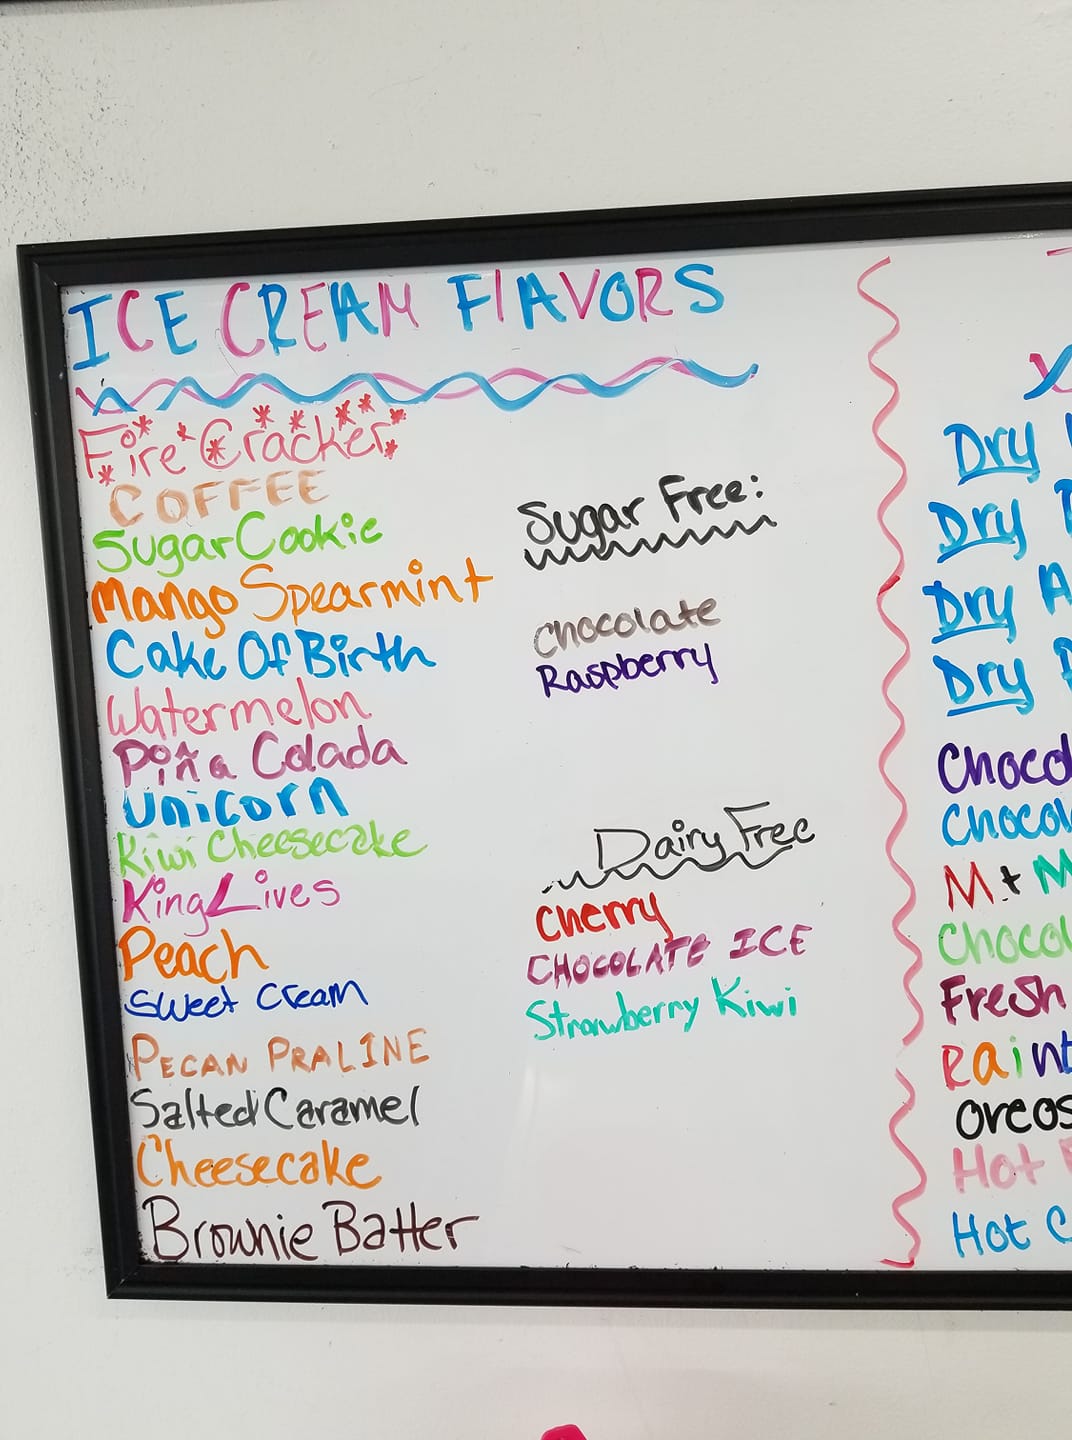 ICE CREAM FLAVORS
Fire Cracker
COFFEE
Sugar Cookie
Mango Spearmint
Cake Of Birth
Watermelon
Piña Colada
Unicorn
Kiwi Cheesecake
King Lives
Peach
Sweet Cream
PECAN PRALINE
Salted Caramel
Cheesecake
Brownie Batter
Sugar Free:
Chocolate
Raspberry
Dairy Free
Cherry
CHOCOLATE ICE
Strawberry Kiwi
Dry
Dry
Dry
Dry
M+M
Fresh
Oreos
Hot
Hot